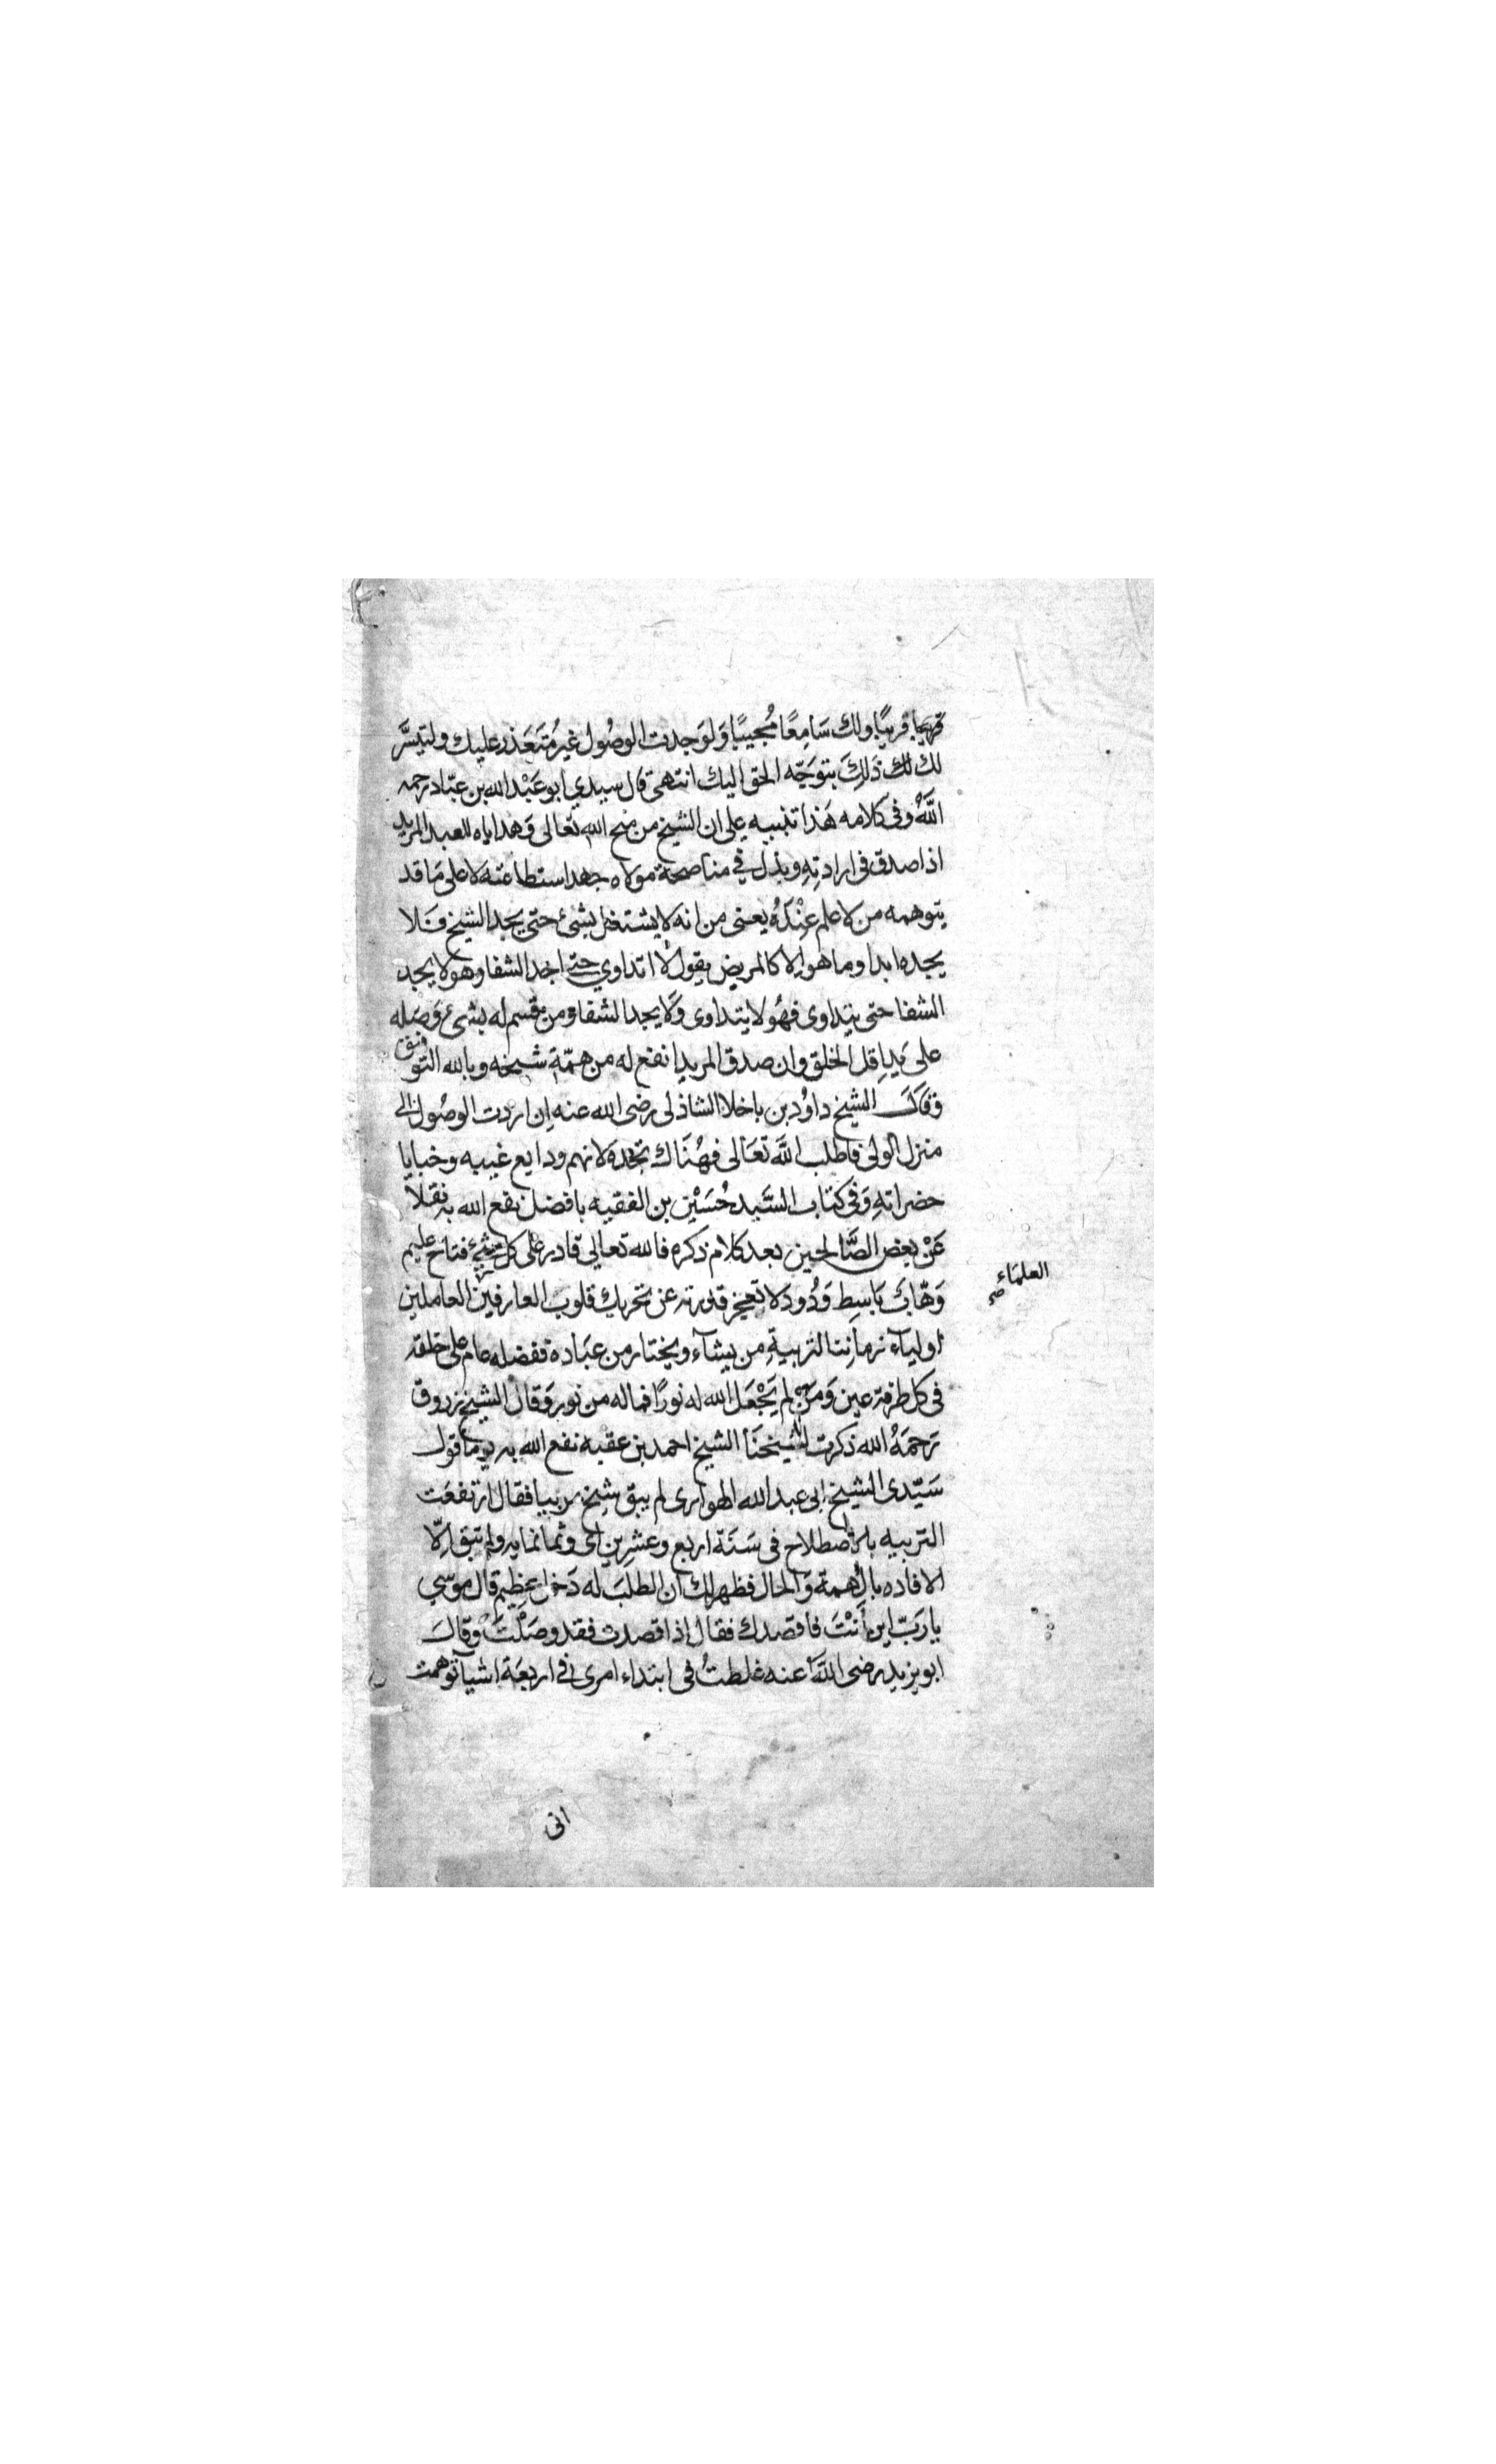 قريبًا ولك سَامِعًا مُجيبًا وَلوَجدت الوصُول غيرُ مُتَعَذر عليك ولتيسَّر
لك ذَلِكَ بتوَجّه الحق اليك انتهى قال سيدي ابو عَبْد الله بن عبّاد رحمه
اللَّهُ وفى كلامه هَذا تنبيه على ان الشيخ من منح الله تعَالى وَهداياه للعبد المريد
اذا صدق فى ارادتِهِ وبذل في مناصحة مولاه جهد استطاعته لا على مَا قد
يتوهمه من لا علم عِنْدَهُ يعنى من انه لا يشتغل بشئ حتى يجد الشيخ فَلا
يجده ابدا وما هو إلا كالمريض يقول لا اتداوي حتى اجد الشفا وهو لا يجد
الشفا حتى يتداوى فهُو لا يتداوى وَلا يجد الشفا ومن قسم له بشئ وَصَله
على يَدِ اقل الخلق وان صدق المريد انفع له من همّة شيخه وبالله التوفيق
وَقَالَ الشيخ داوُد بن باخلا الشاذلى رضى الله عنه إن اردت الوصُول الى
منزل الولى فاطلب اللَّه تعَالى فهُنَاك تجده لانهم ودايع غيبه وخبايا
حضراتهِ وَفى كتاب السَّيد حُسَيْن بن الفقيه بافضل نفع الله به نقلا
عَنْ بعض الصَّالحين بعد كلام ذكره فالله تعالي قادر على كل شئ فتاح عليم
وَهّابٌ بَاسِط وَدُود لا تعجز قدرته عن تحريك قلوب العارفين العاملين
العلمَاء صح
اوليآء زمان التربيةِ من يشآء ويختار من عبَاده ففضله عام على خلقه
فى كل طرفة عين وَمَنْ لم يَجْعَل الله له نورًا فماله من نور وَقال الشيخ زروق
رَحمَهُ الله ذكرت لشيخنَا الشيخ احمد بن عقبه نفع الله به يومًا قول
سَيّدى الشيخ ابى عبد الله الهوارى لم يبق شيخ مربيا فقال ارتفعَت
التربيه بالاصطلاح فى سَنَة اربع وعشرين اى وثمانمايه ولم تبق الّا
الافاده بالهمة وَالحال فظهر لك ان الطلبَ له دَخل عظيم قال موسى
يا رَبّ اين أَنْتَ فاقصدك فقال إذا قصدت فقد وصَلْتَ وقالَ
ابو يزيد رضى اللَّه عنه غلطتُ فى ابتداء امرى في اربعَة اشيآ توهمت
انى